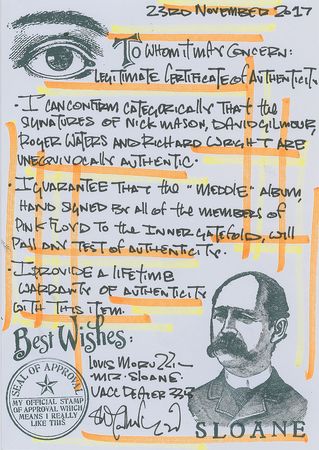 23RD NOVEMBER 2017
TO WHOM IT MAY CONCERN:
LEGITIMATE CERTIFICATE OF AUTHENTICITY
• I CAN CONFIRM CATEGORICALLY THAT THE
SIGNATURES OF NICK MASON, DAVID GILMOUR,
ROGER WATERS AND RICHARD WRIGHT ARE
UNEQUIVOCALLY AUTHENTIC.
• I GUARANTEE THAT THE "MEDDLE" ALBUM,
HAND SIGNED BY ALL OF THE MEMBERS OF
PINK FLOYD TO THE INNER GATEFOLD, WILL
PASS ANY TEST OF AUTHENTICITY.
• I PROVIDE A LIFETIME
WARRANTY OF AUTHENTICITY
WITH THIS ITEM.
Best Wishes:
LOUIS
MR. SLOANE
DEALER
SEAL OF APPROVAL
MY OFFICIAL STAMP
OF APPROVAL WHICH
MEANS I REALLY
LIKE THIS
SLOANE